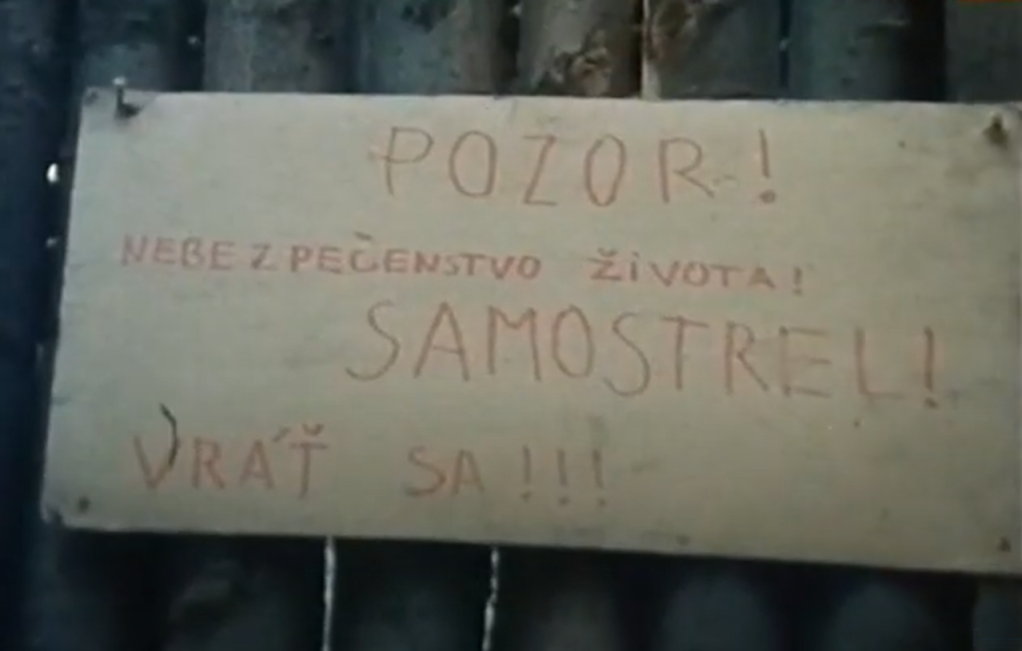 POZOR!
NEBEZPEČENSTVO ŽIVOTA!
SAMOSTREL!
VRÁŤ SA!!!